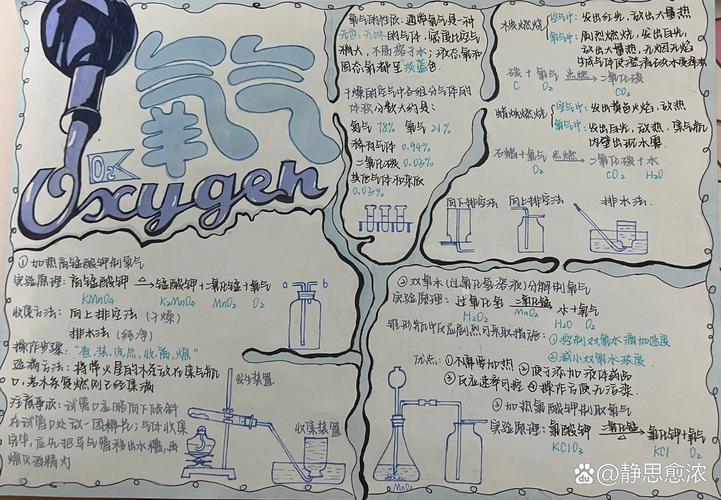 氧气
O₂
Oxygen
氧气的性质: 通常氧气是一种
无色,无味的气体,密度比空气
稍大,不易溶于水;液态氧和
固态氧都呈淡蓝色.
干燥的空气中各组分气体的
体积分数大约是:
氮气 78% 氧气 21%
稀有气体 0.94%
二氧化碳 0.03%
其他气体和杂质
0.03%
木炭燃烧
空气中: 发出红光,放出大量热
氧气中: 剧烈燃烧,发出白光,
放出大量热,无烟无焰
碳 + 氧气 点燃→ 二氧化碳
C O₂ CO₂
蜡烛燃烧
空气中: 发出黄色火焰,放热
氧气中: 发出白光,放热,集气瓶
内壁出现水雾.
石蜡 + 氧气 点燃→ 二氧化碳 + 水
O₂ CO₂ H₂O
向下排空法 向上排空法 排水法
① 加热高锰酸钾制氧气
实验原理: 高锰酸钾 △→ 锰酸钾+二氧化锰+氧气
KMnO₄ K₂MnO₄ MnO₂ O₂
收集方法: 向上排空法 (干燥)
排水法 (纯净)
操作步骤: "查,装,定,点,收,离,熄"
验满方法: 将带火星的木条放在集气瓶
口,若木条复燃则已经集满
试管口应略向下倾斜
在试管口处放一团棉花;气体收集
完毕,应先把导气管移出水槽,再
熄灭酒精灯
a b
发生装置
收集装置
② 双氧水(过氧化氢溶液)分解制氧气
实验原理: 过氧化氢 二氧化锰→ 水+氧气
H₂O₂ MnO₂ H₂O O₂
锥形瓶中反应剧烈可采取措施: ① 控制双氧水滴加速度
② 减小双氧水浓度
优点: ①不需要加热 ②便于添加液体药品
③反应速率可控 ④操作方便无污染.
③ 加热氯酸钾制取氧气
实验原理: 氯酸钾 二氧化锰△→ 氯化钾+氧气
KClO₃ KCl O₂
MnO₂
Bai百科@静思愈浓